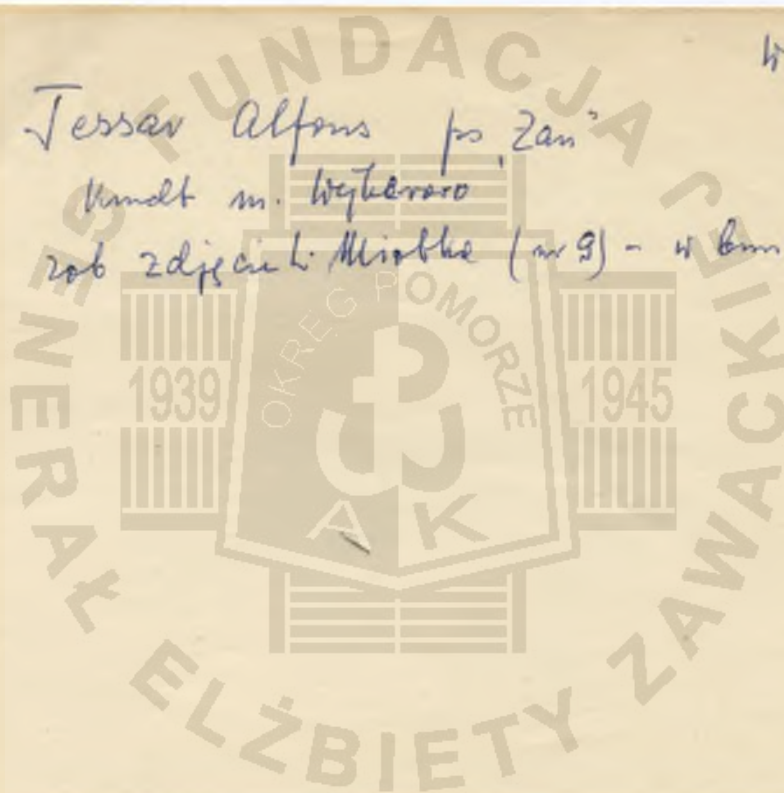 W
Tessar Alfons ps „Zan”
Kmdt m. Wejherowo
zob zdjęcie L. Miotke (nr 9) - w
FUNDACJA GENERAŁ ELŻBIETY ZAWACKIEJ
OKRĘG POMORZE
1939 1945
AK